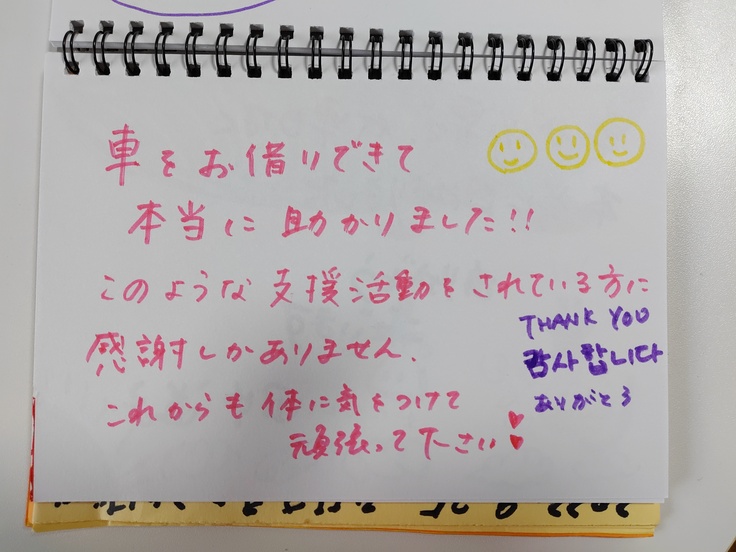 車をお借りできて
本当に助かりました!!
このような支援活動をされている方に
感謝しかありません.
これからも体に気をつけて
頑張って下さい
THANK YOU
감사합니다
ありがとう